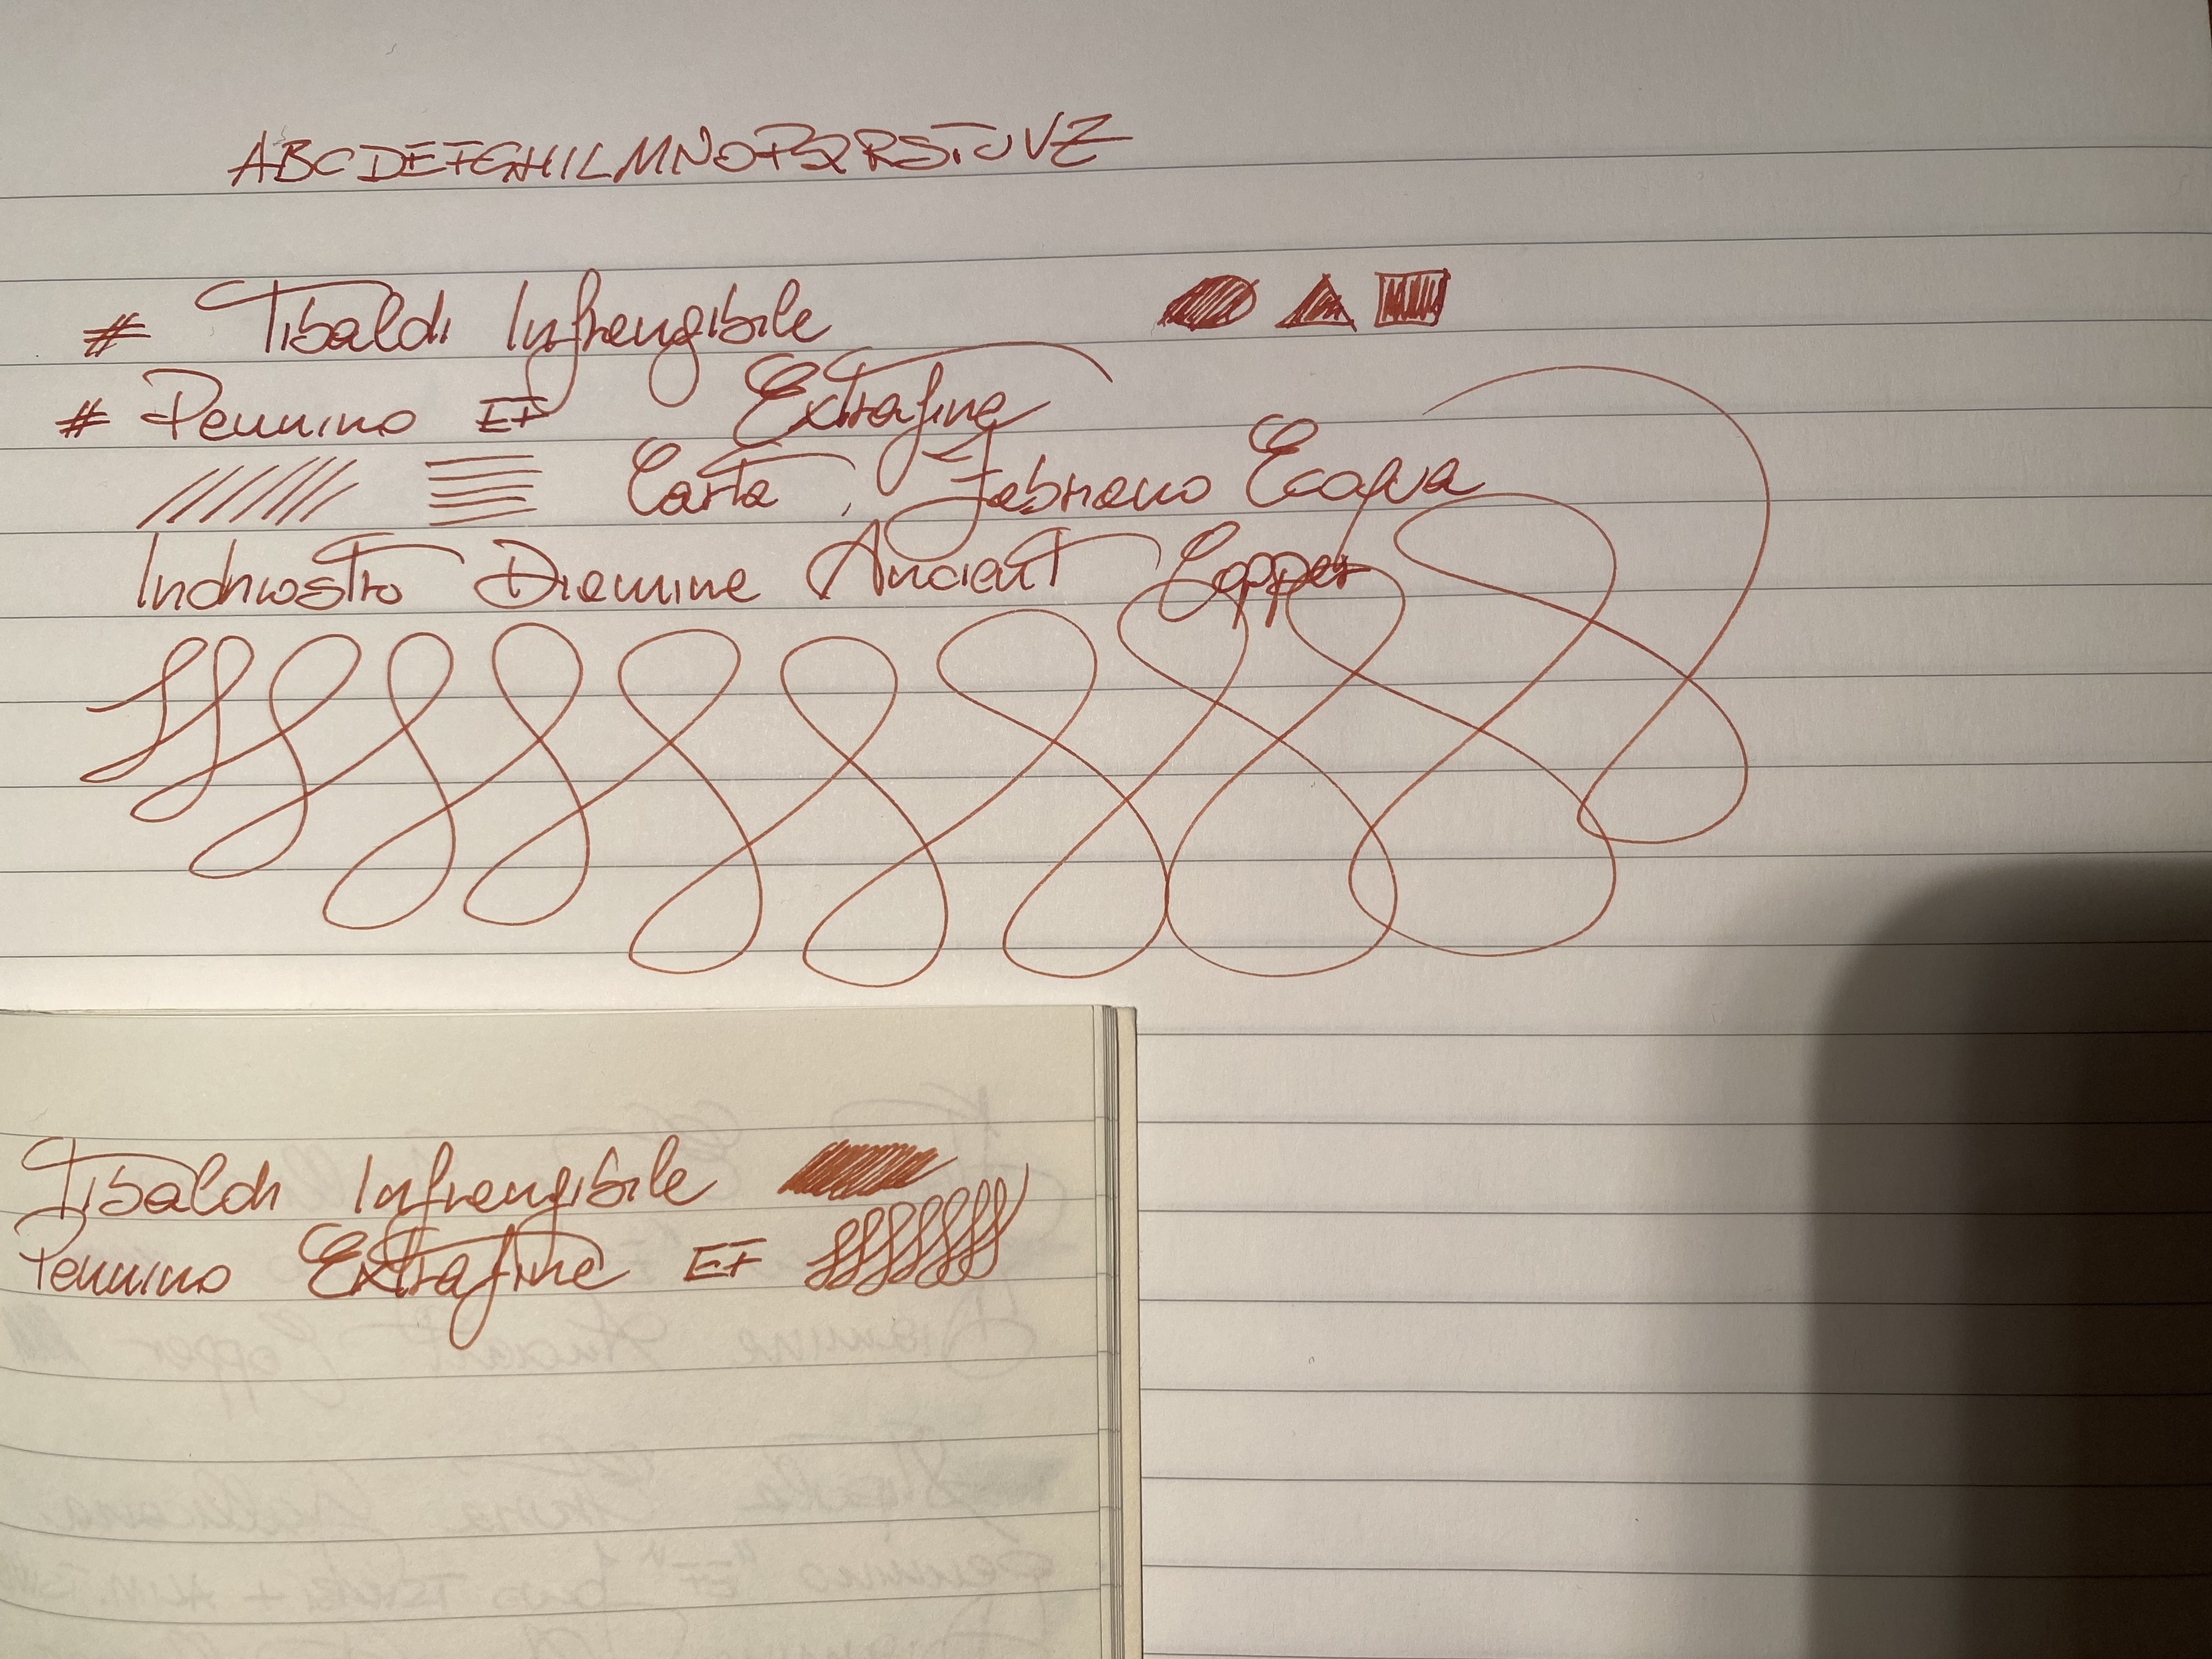 ABCDEFGHILMNOPQRSTUVZ
# Tibaldi Infrangibile
# Pennino EF Extrafine
Carta : Fabriano Ecoqua
Inchiostro Diamine Ancient Copper
Tibaldi Infrangibile
Pennino Extrafine EF
Diamine Ancient Copper